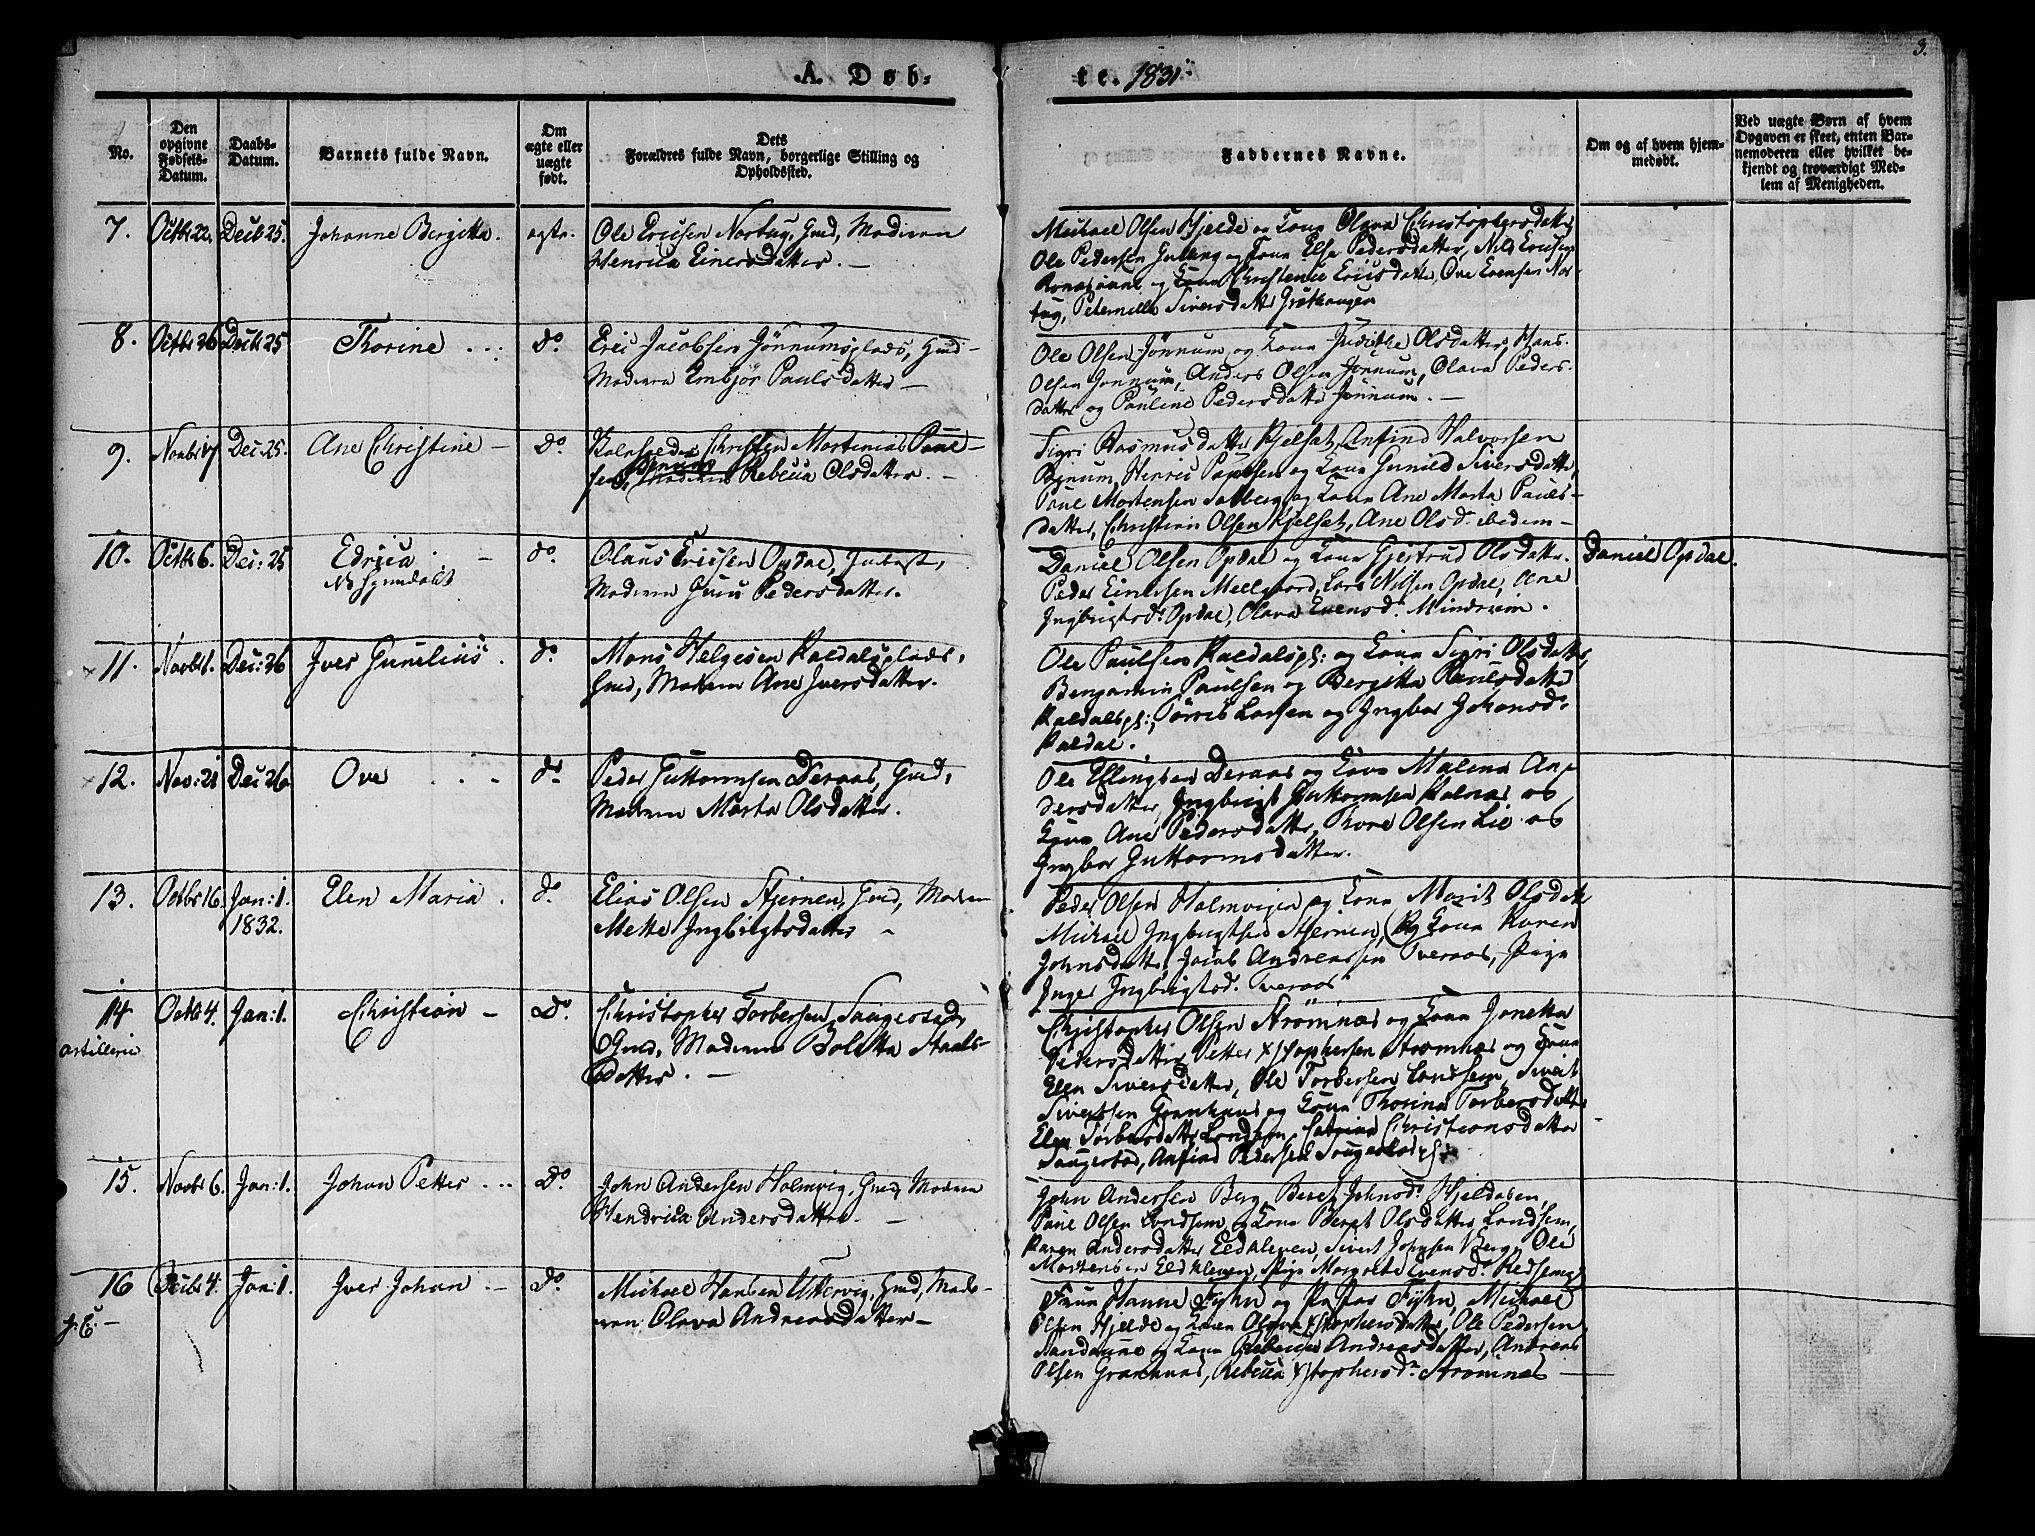 3.
A. Døb-
te. 1831.
No.
Den opgivne Fødsels-Datum.
Daabs-Datum.
Barnets fulde Navn.
Om ægte eller uægte født.
Dets Forældres fulde Navn, borgerlige Stilling og Opholdssted.
Faddernes Navne.
Om og af hvem hjemmedøbt.
Ved uægte Børn af hvem Opgaven er skeet, enten Barnemoderen eller hvilket bekjendt og troværdigt Medlem af Menigheden.
7. Octbr 22. Decb 25. Johanne Bergitta. ægte.
Ole Ericsen Nortug, Gmd, Moderen
Henrica Einersdatter. —
Michael Olsen Hjelde og Kona Olava Christophersdatter,
Ole Pedersen Juleng og Kona Else Pedersdatter, Nils Ericsen
og Kona Christence Ericsdatter, Ove Evensen Nor-
tug, Peternilla Siversdatter
8. Octbr 26 Decb 25 Thorine do.
Eric Jacobsen Jønnumsplads, Gmd-
Moderen Embjør Paulsdatter —
Ole Olsen Jønnum og Kona Olsdatter, Hans
Olsen Jønnum, Anders Olsen Jønnum, Olava Peders-
datter og Pauline Pedersdatter Jønnum. —
9. Novbr 17 Dec: 25. Ane Christine — do.
Christen Mortinus Paul-
sen, Moderen Rebecca Olsdatter. —
Sigri Rasmusdatter Kjelsat, Anfind Halvorsen
Bynum, Henric Paulsen og Kona Gunild Siversdatter,
Paul Mortensen Salberg og Kona Ane Marta Pauls-
datter, Christian Olsen Kjelsat, Ane Olsd. ibidem —
10. Octbr 6. Dec: 25 Edrica — do.
Claus Ericsen Opdal, Inderst,
Moderen Guru Pedersdatter.
Daniel Olsen Opdal og Kona Gjertrud Olsdatter
Peder Einersen Mellgaard, Lars Nilsen Opdal, Ane
Ingbrigtsdr Opdal, Olava Evensdr.
Daniel Opdal.
11. Novbr 1. Dec: 26 Iver Gunelius. do.
Mons Helgesen Kaldalsplads,
Gmd, Moderen Ane Iversdatter.
Ole Paulsen Kaldalspl: og Kona Sigri Olsdatter,
Benjamin Paulsen og Bergitta Paulsdatter
Kaldalspl:, Tørris Larsen og Ingbor Johansd.
Kaldal.
12. Nov: 21 Dec 26 Ove do.
Peder Guttormsen Deraas, Gmd,
Moderen Marta Olsdatter.
Ole Ellingsen Deraas og Kona Malena An-
dersdatter, Ingbrigt Guttormsen og
Kona Ane Pedersdatter, Tore Olsen Lie og
Ingbor Guttormsdatter.
13. Octbr 16. Jan: 1. 1832. Elen Maria. do.
Elias Olsen Stjernen, Gmd, Moderen
Mette Ingbrigtsdatter —
Peder Olsen Holmvigen og Kona Marit Olsdatter
Michael Ingbrigtsen Stjernen, og Kona Karen
Johnsdatter, Jacob Andreassen Tveraas, Pige
Inger Ingbrigtsd. Tveraas
14 Octbr 4. Jan: 1. Christian — Do.
artillerie
Christopher Torbersen Saugestad,
Gmd, Moderen Boletta Staals-
datter. —
Christopher Olsen Strømnæs og Kona Jonetta
Pedersdatter, Petter Xstophersen Strømnæs og Kona
Elen Siversdatter, Ole Torbersen Londsem, Sivert
Sivertsen Grannæs og Kona Thorina Torbersdatter
Elen Torbersdatter Londsem, Christiansdatter
Saugestad, Anfind Pedersen Saugestad
15. Novbr 6. Jan: 1. Johan Petter. Do.
John Andersen Holmvig, Gmd, Moderen
Hendrica Andersdatter. —
John Andersen Berg, Beret Johnsdr Hjeldosen,
Paul Olsen Londsem, og Kona Beret Olsdatter Londsem,
Karen Andersdatter Eldkleven, Sivert Johnsen Berg, Ole
Mortensen Eldkleven, Pige Margrete Evensd.
16 Decb 4. Jan: 1. Iver Johan — Do.
Michael Hansen Uttervig, Gmd, Mode-
ren Olava Andreasdatter —
Fruen Hanna Fyhn og Fyhn, Michael
Olsen Hjelde og Kona Olava Xstophersdatter, Ole Pedersen
Sandaune og Kona Rebecca Andreasdatter, Andreas
Olsen Grannæs, Rebecca Xstophersdr Strømnæs —